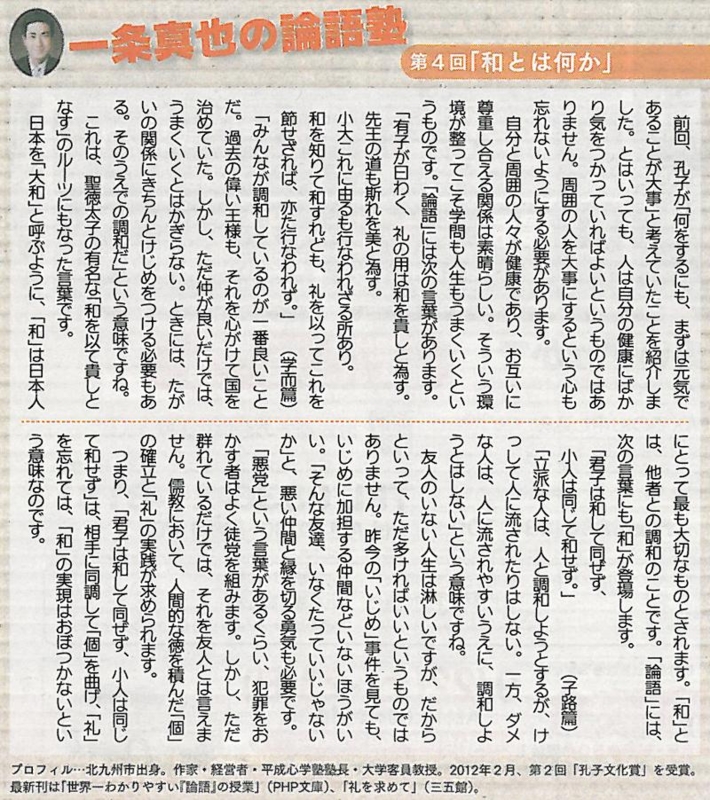 一条真也の論語塾
第4回「和とは何か」
前回、孔子が「何をするにも、まずは元気で
あることが大事」と考えていたことを紹介しま
した。とはいっても、人は自分の健康にばか
り気をつかっていればよいというものではあ
りません。周囲の人を大事にするという心も
忘れないようにする必要があります。
自分と周囲の人々が健康であり、お互いに
尊重し合える関係は素晴らしい。そういう環
境が整ってこそ学問も人生もうまくいくとい
うものです。「論語」には次の言葉があります。
「有子が曰わく、礼の用は和を貴しと為す。
先王の道も斯れを美と為す。
小大これに由るも行なわれざる所あり。
和を知りて和すれども、礼を以ってこれを
節せざれば、亦た行なわれず。」（学而篇）
「みんなが調和しているのが一番良いこと
だ。過去の偉い王様も、それを心がけて国を
治めていた。しかし、ただ仲が良いだけでは、
うまくいくとはかぎらない。ときには、たが
いの関係にきちんとけじめをつける必要もあ
る。そのうえでの調和だ」という意味ですね。
これは、聖徳太子の有名な「和を以て貴しと
なす」のルーツにもなった言葉です。
日本を「大和」と呼ぶように、「和」は日本人
にとって最も大切なものとされます。「和」と
は、他者との調和のことです。「論語」には、
次の言葉にも「和」が登場します。
「君子は和して同ぜず、
小人は同じて和せず。」（子路篇）
「立派な人は、人と調和しようとするが、け
っして人に流されたりはしない。一方、ダメ
な人は、人に流されやすいうえに、調和しよ
うとはしない」という意味ですね。
友人のいない人生は淋しいですが、だから
といって、ただ多ければいいというものでは
ありません。昨今の「いじめ」事件を見ても、
いじめに加担する仲間などいないほうがい
い。「そんな友達、いなくたっていいじゃない
か」と、悪い仲間と縁を切る勇気も必要です。
「悪党」という言葉があるくらい、犯罪をお
かす者はよく徒党を組みます。しかし、ただ
群れているだけでは、それを友人とは言えま
せん。儒教において、人間的な徳を積んだ「個」
の確立と「礼」の実践が求められます。
つまり、「君子は和して同ぜず、小人は同じ
て和せず」は、相手に同調して「個」を曲げ、「礼」
を忘れては、「和」の実現はおぼつかないとい
う意味なのです。
プロフィル…北九州市出身。作家・経営者・平成心学塾塾長・大学客員教授。2012年2月、第2回「孔子文化賞」を受賞。
最新刊は「世界一わかりやすい『論語』の授業」（PHP文庫）、「礼を求めて」（三五館）。